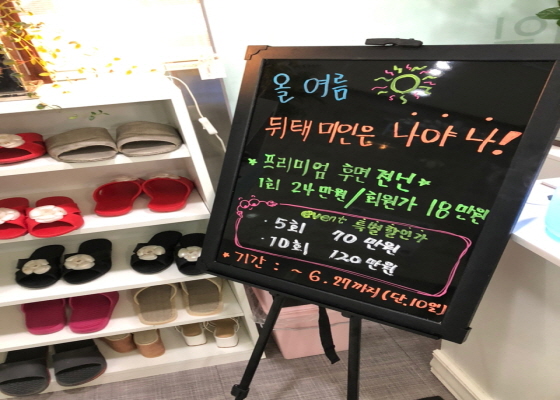 올 여름
뒤태 미인은 나야 나!
*프리미엄 후면 전신*
1회 24만원/회원가 18만원
event 특별할인가
· 5회 70만원
· 10회 120만원
* 기간 : ~ 6. 27까지(단, 10일)